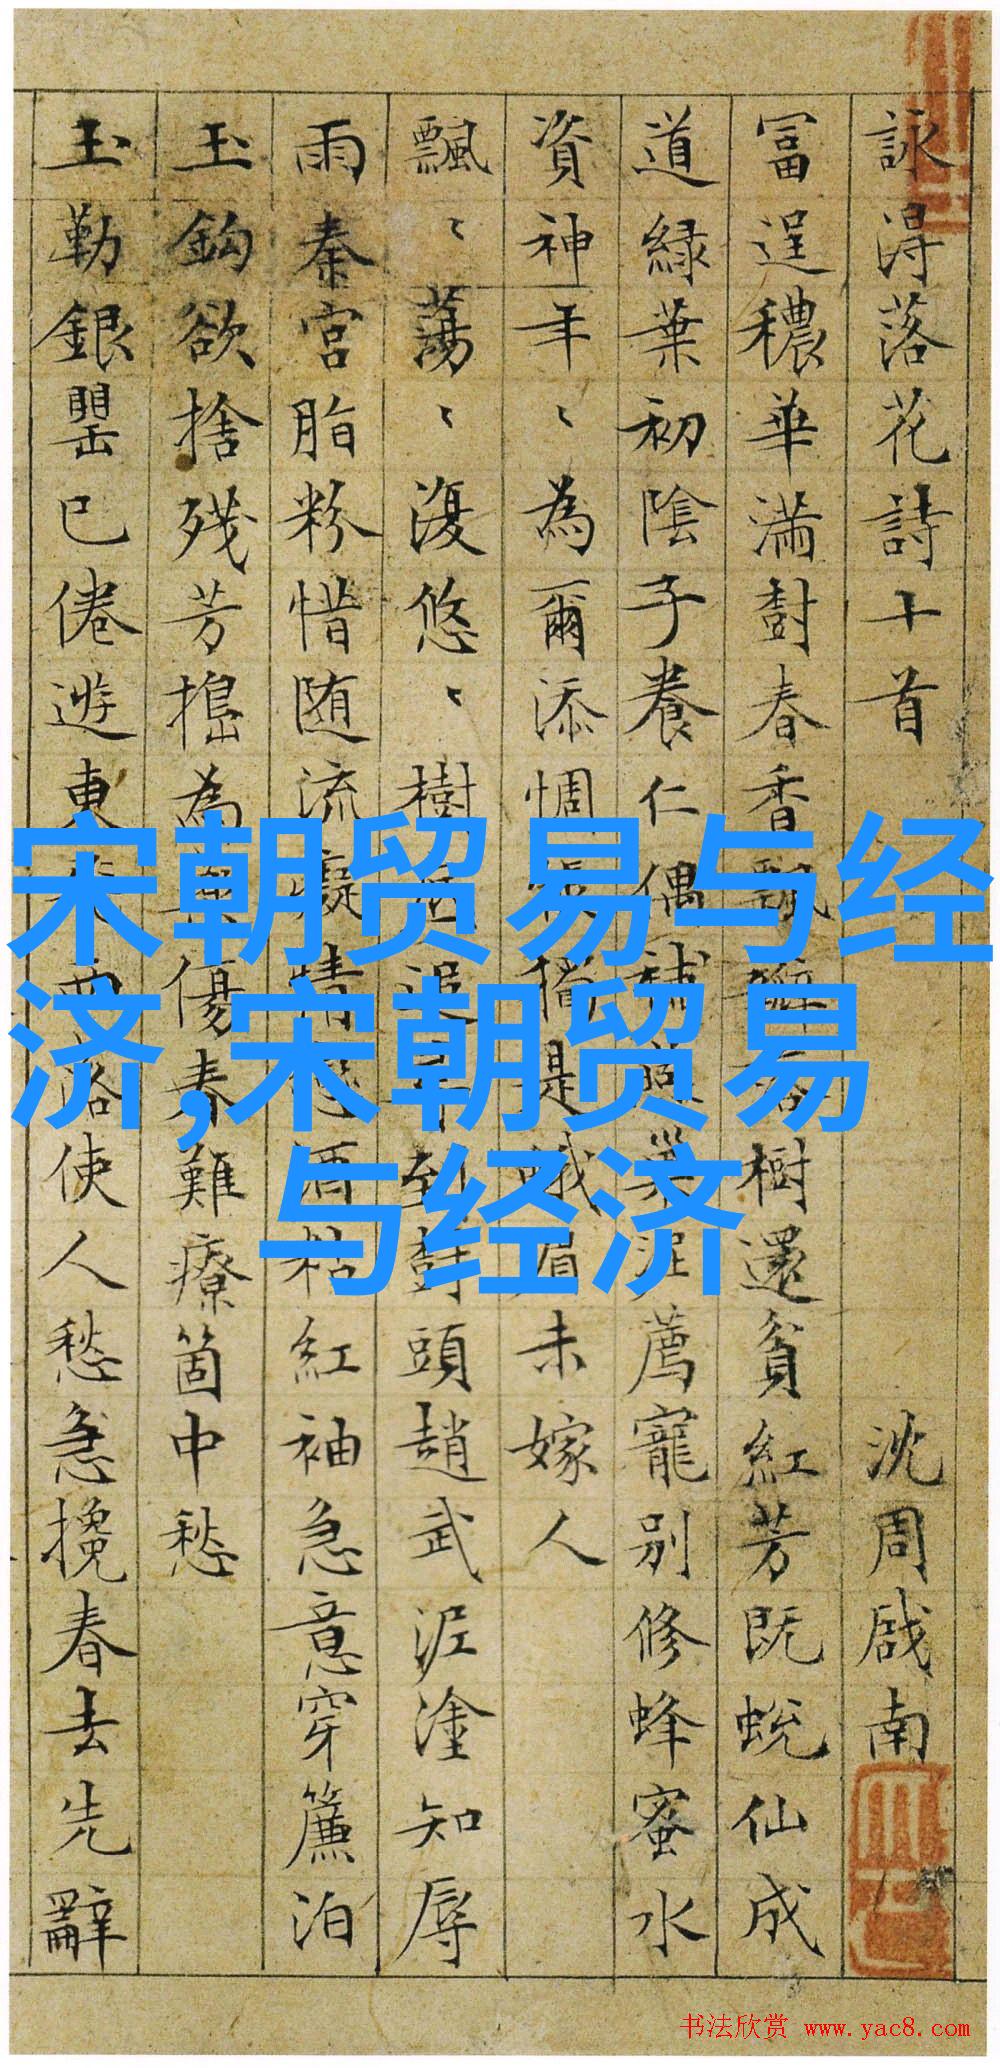 詠淂落花詩十首 沈周啟南
冨逞穠華滿樹春香飄樹還貧紅芳既蛻仙成
道緑葉初陰子養仁偶補巢泥薦寵別修蜂蜜水
資神年〻為爾添惆獨是蛾眉未嫁人
飄〻蕩〻復悠〻樹追到樹頭趙武泥塗知辱
雨秦宮脂粉惜随流癡情酒粘紅袖急意穿簾泊
玉鈎欲捨殘芳搗為傷春難療箇中愁
玉勒銀罌已倦遊東西落使人愁急攙春去先辭
宋朝贸易与经
济,宋朝贸易
与经济
书法欣赏 www.yac8.com